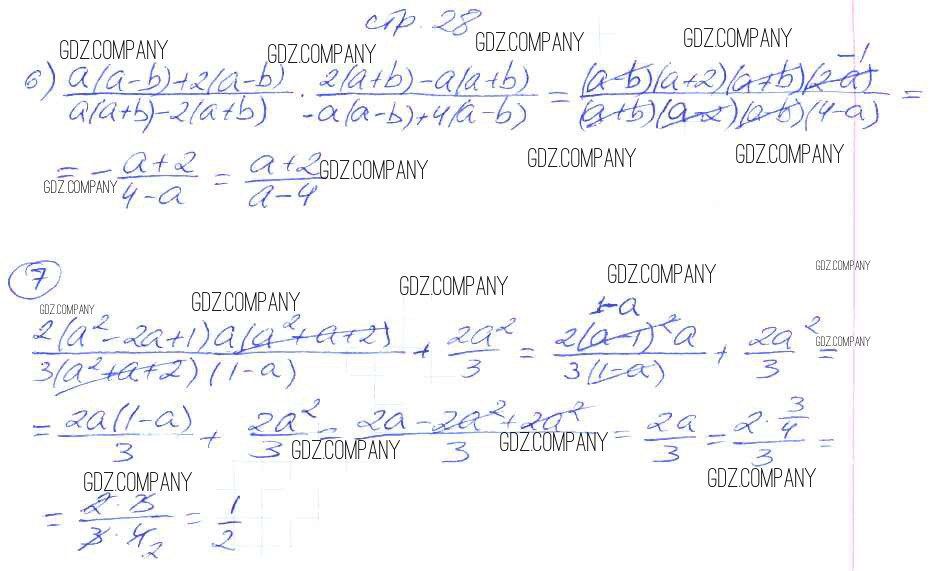 стр. 28
GDZ.COMPANY GDZ.COMPANY GDZ.COMPANY GDZ.COMPANY
б) (a(a-b)+2(a-b))/(a(a+b)-2(a+b)) · (2(a+b)-a(a+b))/(-a(a-b)+4(a-b)) = ((a-b)(a+2)(a+b)(2-a) -1)/((a+b)(a-2)(a-b)(4-a)) =
= - (a+2)/(4-a) = (a+2)/(a-4)
GDZ.COMPANY GDZ.COMPANY GDZ.COMPANY GDZ.COMPANY
7
GDZ.COMPANY GDZ.COMPANY GDZ.COMPANY GDZ.COMPANY GDZ.COMPANY
(2(a²-2a+1)a(a²+a+2))/(3(a²+a+2)(1-a)) + 2a²/3 = (2(a-1)²a)/(3(1-a)) 1-a + 2a²/3 =
GDZ.COMPANY
= 2a(1-a)/3 + 2a²/3 = (2a-2a²+2a²)/3 = 2a/3 = (2·3/4)/3 =
GDZ.COMPANY GDZ.COMPANY GDZ.COMPANY GDZ.COMPANY
= (2·3)/(3·4 2) = 1/2